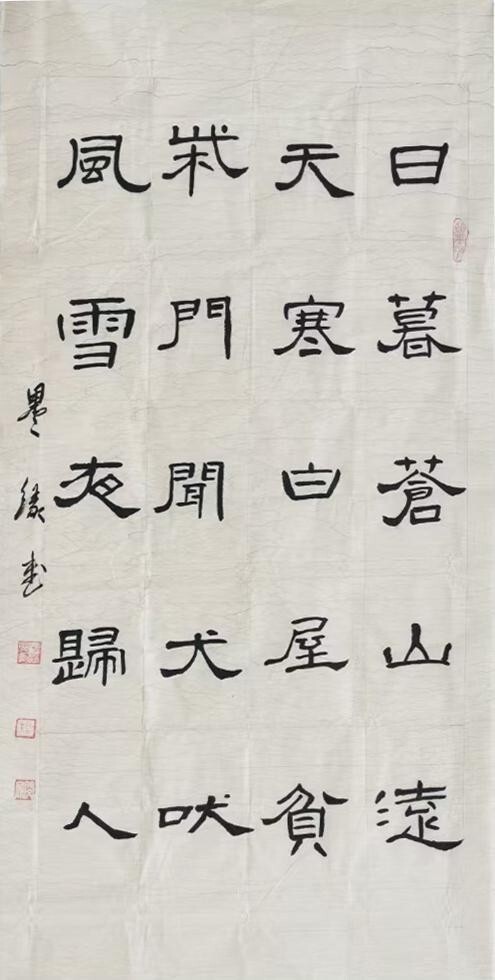 日暮蒼山遠
天寒白屋貧
柴門聞犬吠
風雪夜歸人
墨緣書